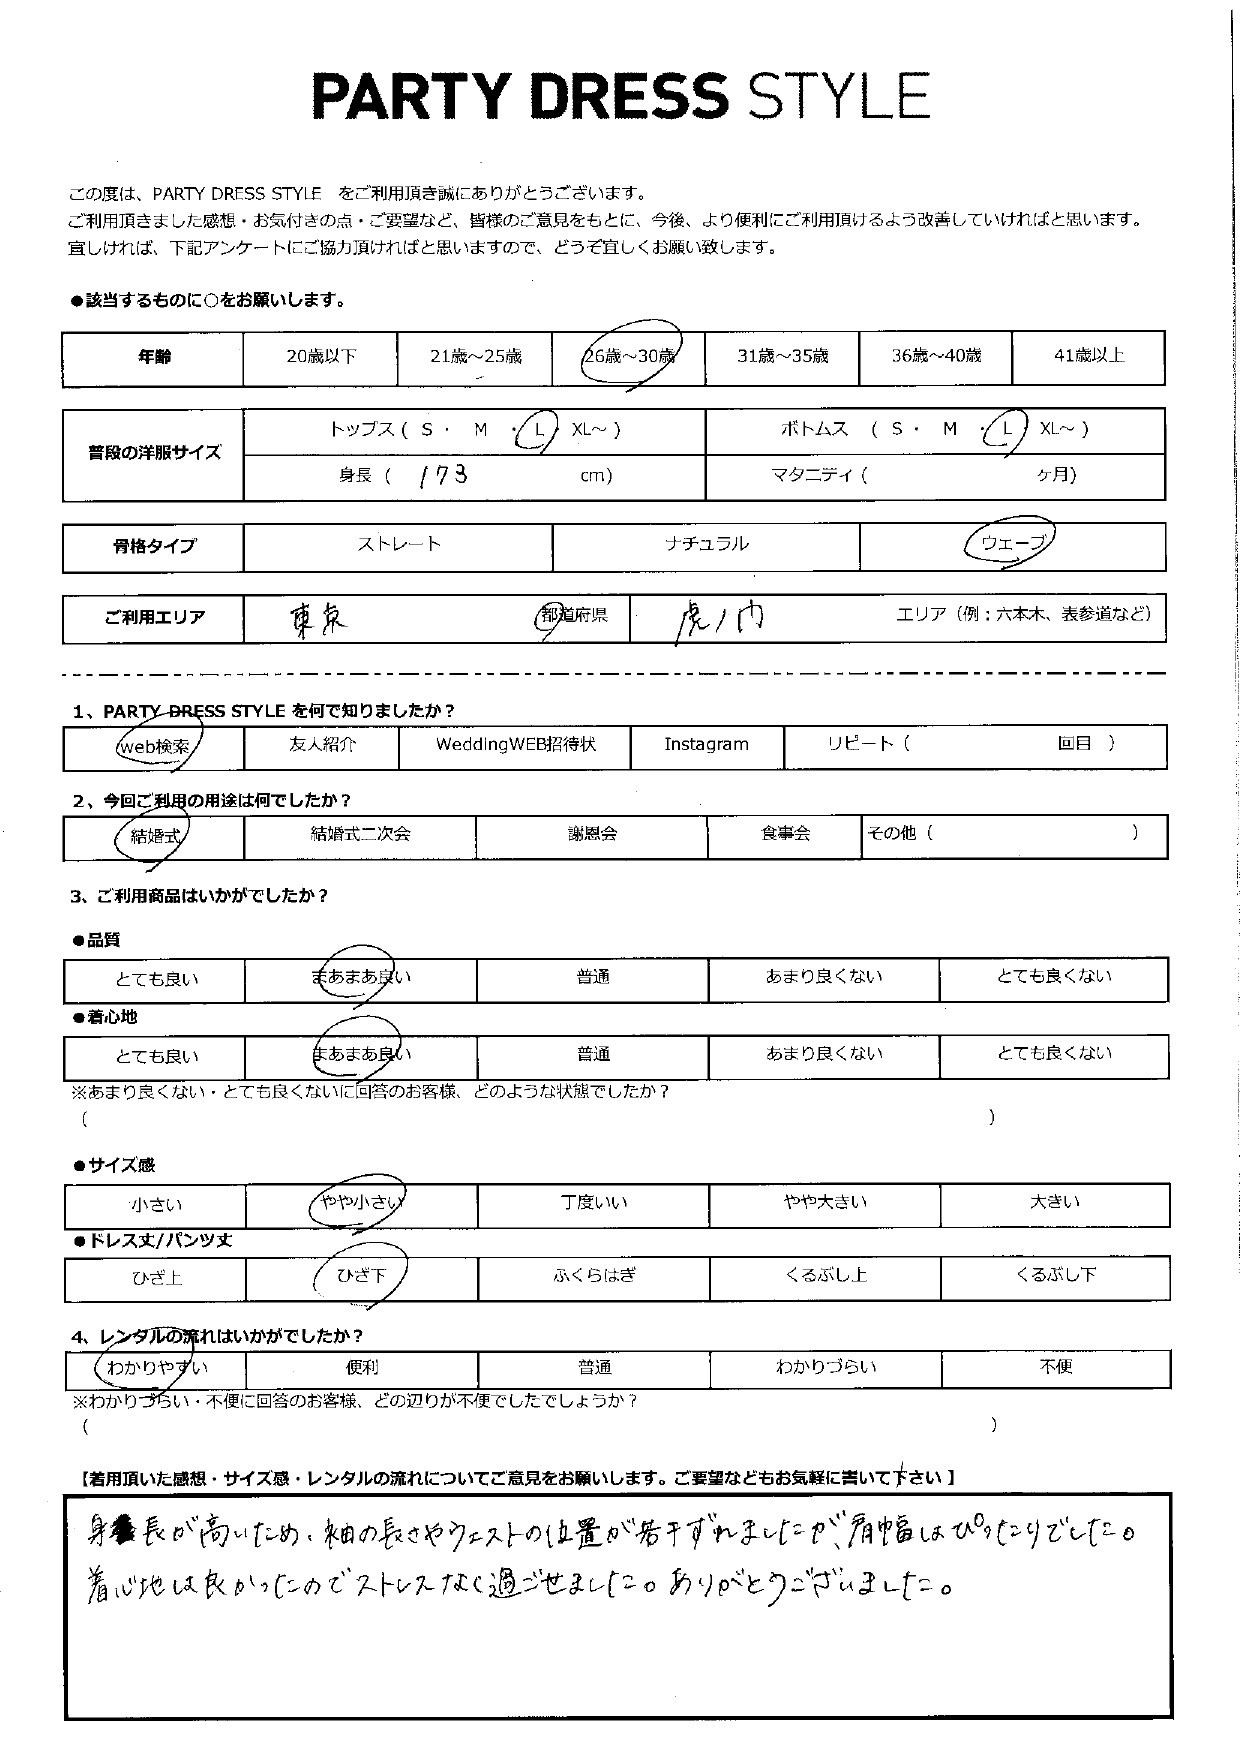 PARTY DRESS STYLE
この度は、PARTY DRESS STYLE をご利用頂き誠にありがとうございます。
ご利用頂きました感想・お気付きの点・ご要望など、皆様のご意見をもとに、今後、より便利にご利用頂けるよう改善していければと思います。
宜しければ、下記アンケートにご協力頂ければと思いますので、どうぞ宜しくお願い致します。
●該当するものに○をお願いします。
年齢 20歳以下 21歳～25歳 26歳～30歳 31歳～35歳 36歳～40歳 41歳以上
普段の洋服サイズ トップス ( S ・ M ・ L XL～ ) ボトムス ( S ・ M ・ L XL～ )
身長 ( 173 cm) マタニティ ( ヶ月)
骨格タイプ ストレート ナチュラル ウェーブ
ご利用エリア 東京 都道府県 虎ノ門 エリア（例：六本木、表参道など）
1、PARTY DRESS STYLE を何で知りましたか？
web検索 友人紹介 WeddingWEB招待状 Instagram リピート ( 回目 )
2、今回ご利用の用途は何でしたか？
結婚式 結婚式二次会 謝恩会 食事会 その他 ( )
3、ご利用商品はいかがでしたか？
●品質
とても良い まあまあ良い 普通 あまり良くない とても良くない
●着心地
とても良い まあまあ良い 普通 あまり良くない とても良くない
※あまり良くない・とても良くないに回答のお客様、どのような状態でしたか？
( )
●サイズ感
小さい やや小さい 丁度いい やや大きい 大きい
●ドレス丈/パンツ丈
ひざ上 ひざ下 ふくらはぎ くるぶし上 くるぶし下
4、レンタルの流れはいかがでしたか？
わかりやすい 便利 普通 わかりづらい 不便
※わかりづらい・不便に回答のお客様、どの辺りが不便でしたでしょうか？
( )
【着用頂いた感想・サイズ感・レンタルの流れについてご意見をお願いします。ご要望などもお気軽に書いて下さい】
身長が高いため、袖の長さやウェストの位置が若干ずれましたが、肩幅はぴったりでした。
着心地は良かったのでストレスなく過ごせました。ありがとうございました。